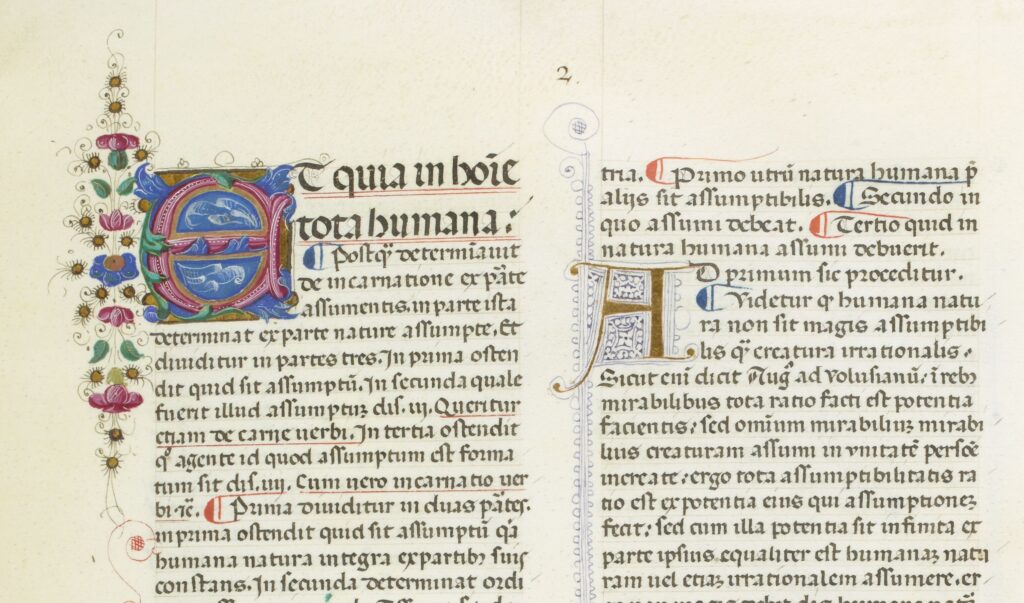 2.
ET quia in hoı̄e
tota humana:
¶ Postq̄ determiauit
de incarnatione ex p̄te
assumentis, in parte ista
determinat ex parte nature assumpte, Et
diuiditur in partes tres. In prima osten
dit quid sit assumptū. In secunda quale
fuerit illud assumptuȝ dis. iij. Queritur
etiam de carne uerbi. In tertia ostendit
q̄ agente id quod assumptum est forma
tum sit dis. iiij. Cum uero incarnatio uer
bi. ⁊c̄. ¶ Prima diuiditur in duas p̄tes.
in prima ostendit quid sit assumptū q̄a
humana natura integra ex partibꝫ suis
constans. In secunda determinat ordi
tria. ¶ Primo utrū natura humana p̄
alijs sit assumptibilis. ¶ Secundo in
quo assumi debeat. ¶ Tertio quid in
natura humana assumi debuerit.
AD primum sic proceditur.
¶ Videtur ꝙ humana natu
ra non sit magis assumptibi
lis q̄ creatura irrationalis.
Sicut eni̅ dicit Aug̅ ad uolusianū. i̅ rebꝫ
mirabilibus tota ratio facti est potentia
facientis: sed omnium mirabiliuȝ mirabi
lius creaturam assumi in vnitatē persoe̅
increate: ergo tota assumptibilitatis ra
tio est ex potentia eius qui assumptioneȝ
fecit: sed cum illa potentia sit infinita ex
parte ipsius equaliter est humanaȝ natu
ram uel etiaȝ irrationalem assumere. er